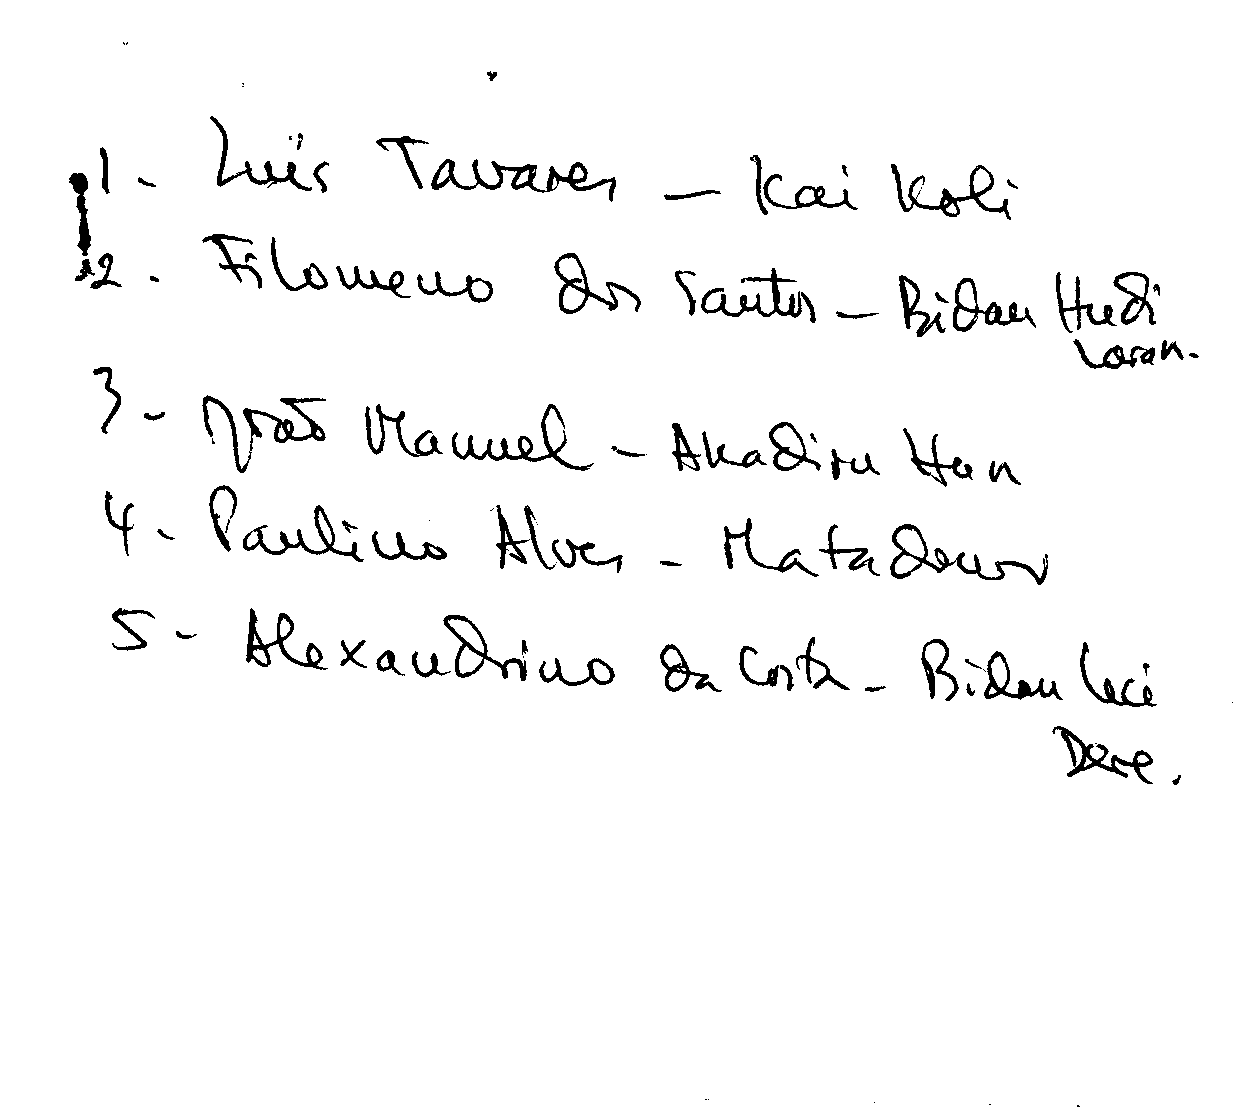 1 - Luís Tavares - Kai Koli
2 - Filomeno dos Santos - Bidau Hudi
Laran.
3 - João Manuel - Akadiru Hun
4 - Paulino Alves - Matadouro
5 - Alexandrino da Costa - Bidau Leci
Dere.